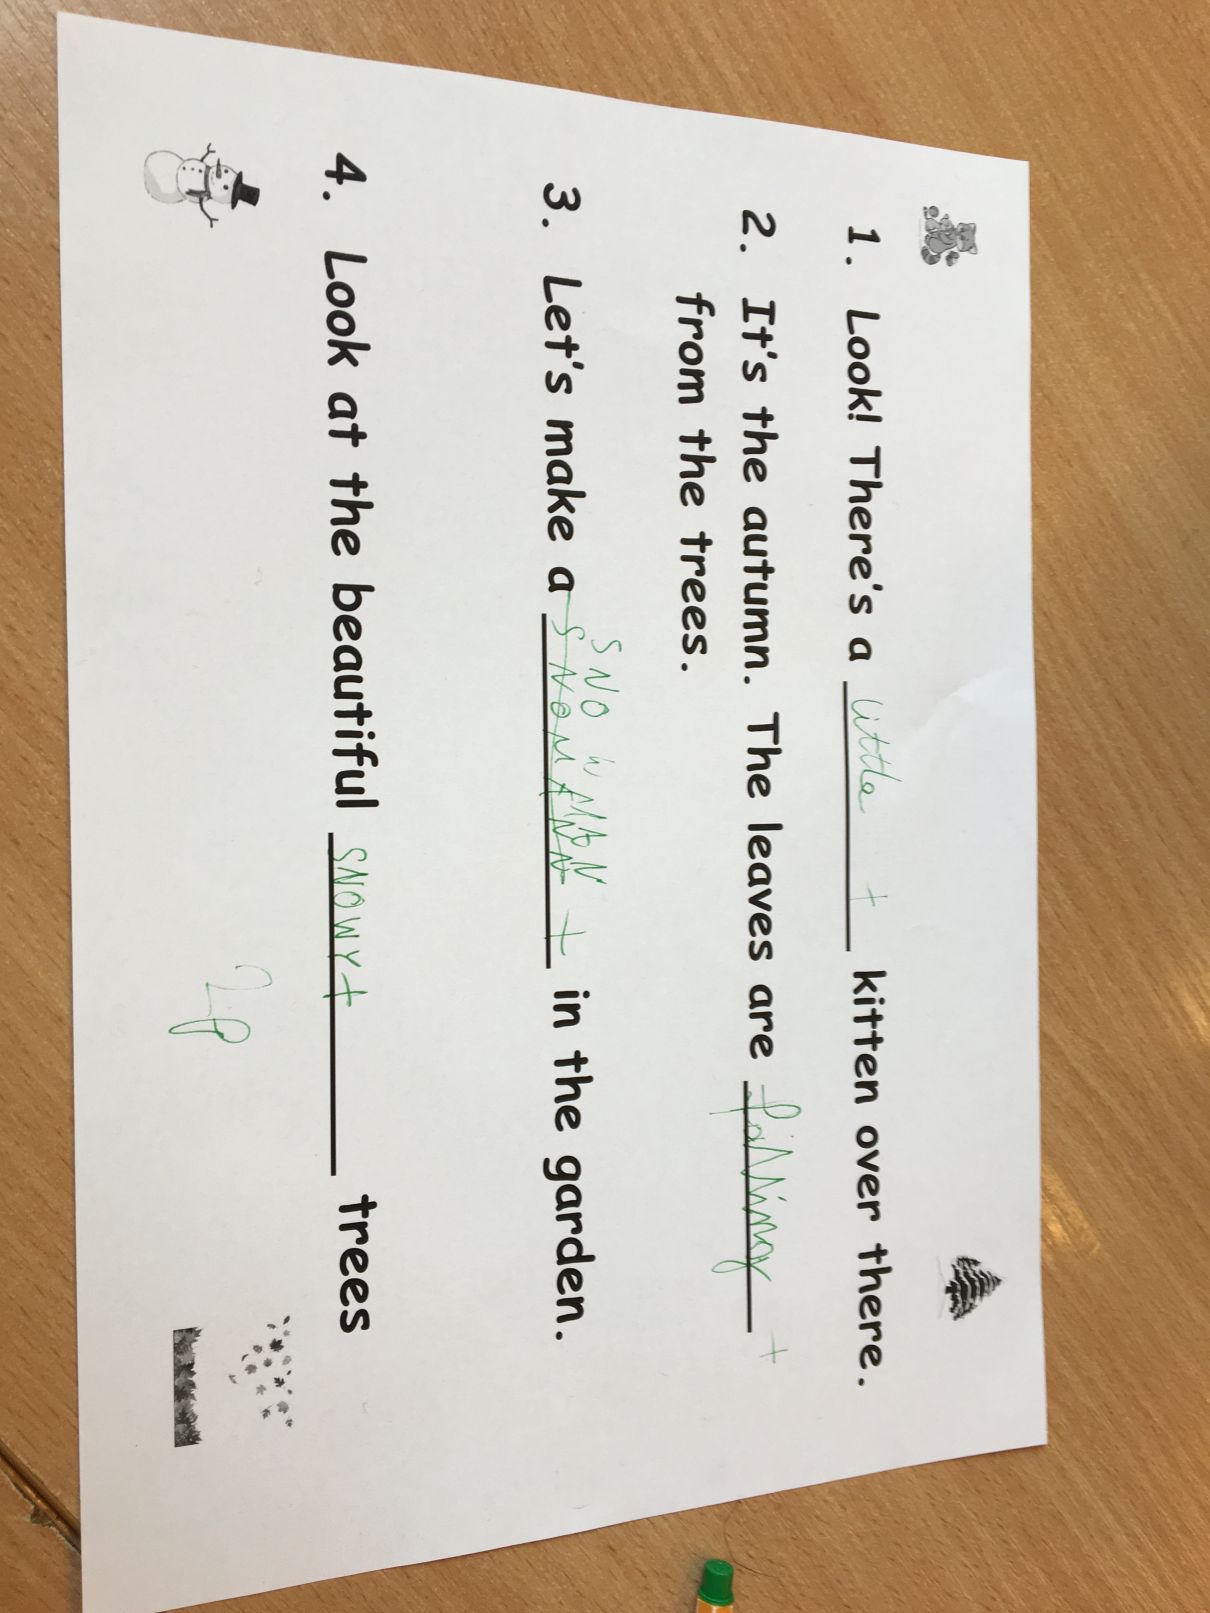 1. Look! There's a little + kitten over there.
2. It's the autumn. The leaves are falling +
from the trees.
SNOWMAN
3. Let's make a SNOMANN + in the garden.
4. Look at the beautiful SNOWY + trees
2p